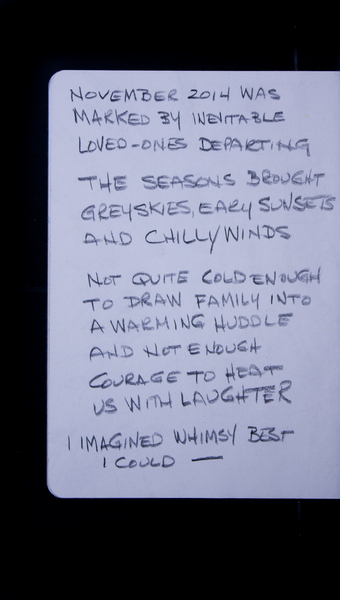 NOVEMBER 2014 WAS
MARKED BY INEVITABLE
LOVED-ONES DEPARTING
THE SEASONS BROUGHT
GREYSKIES, EARY SUNSETS
AND CHILLY WINDS
NOT QUITE COLD ENOUGH
TO DRAW FAMILY INTO
A WARMING HUDDLE
AND NOT ENOUGH
COURAGE TO HEAT
US WITH LAUGHTER
I IMAGINED WHIMSY BEST
I COULD —